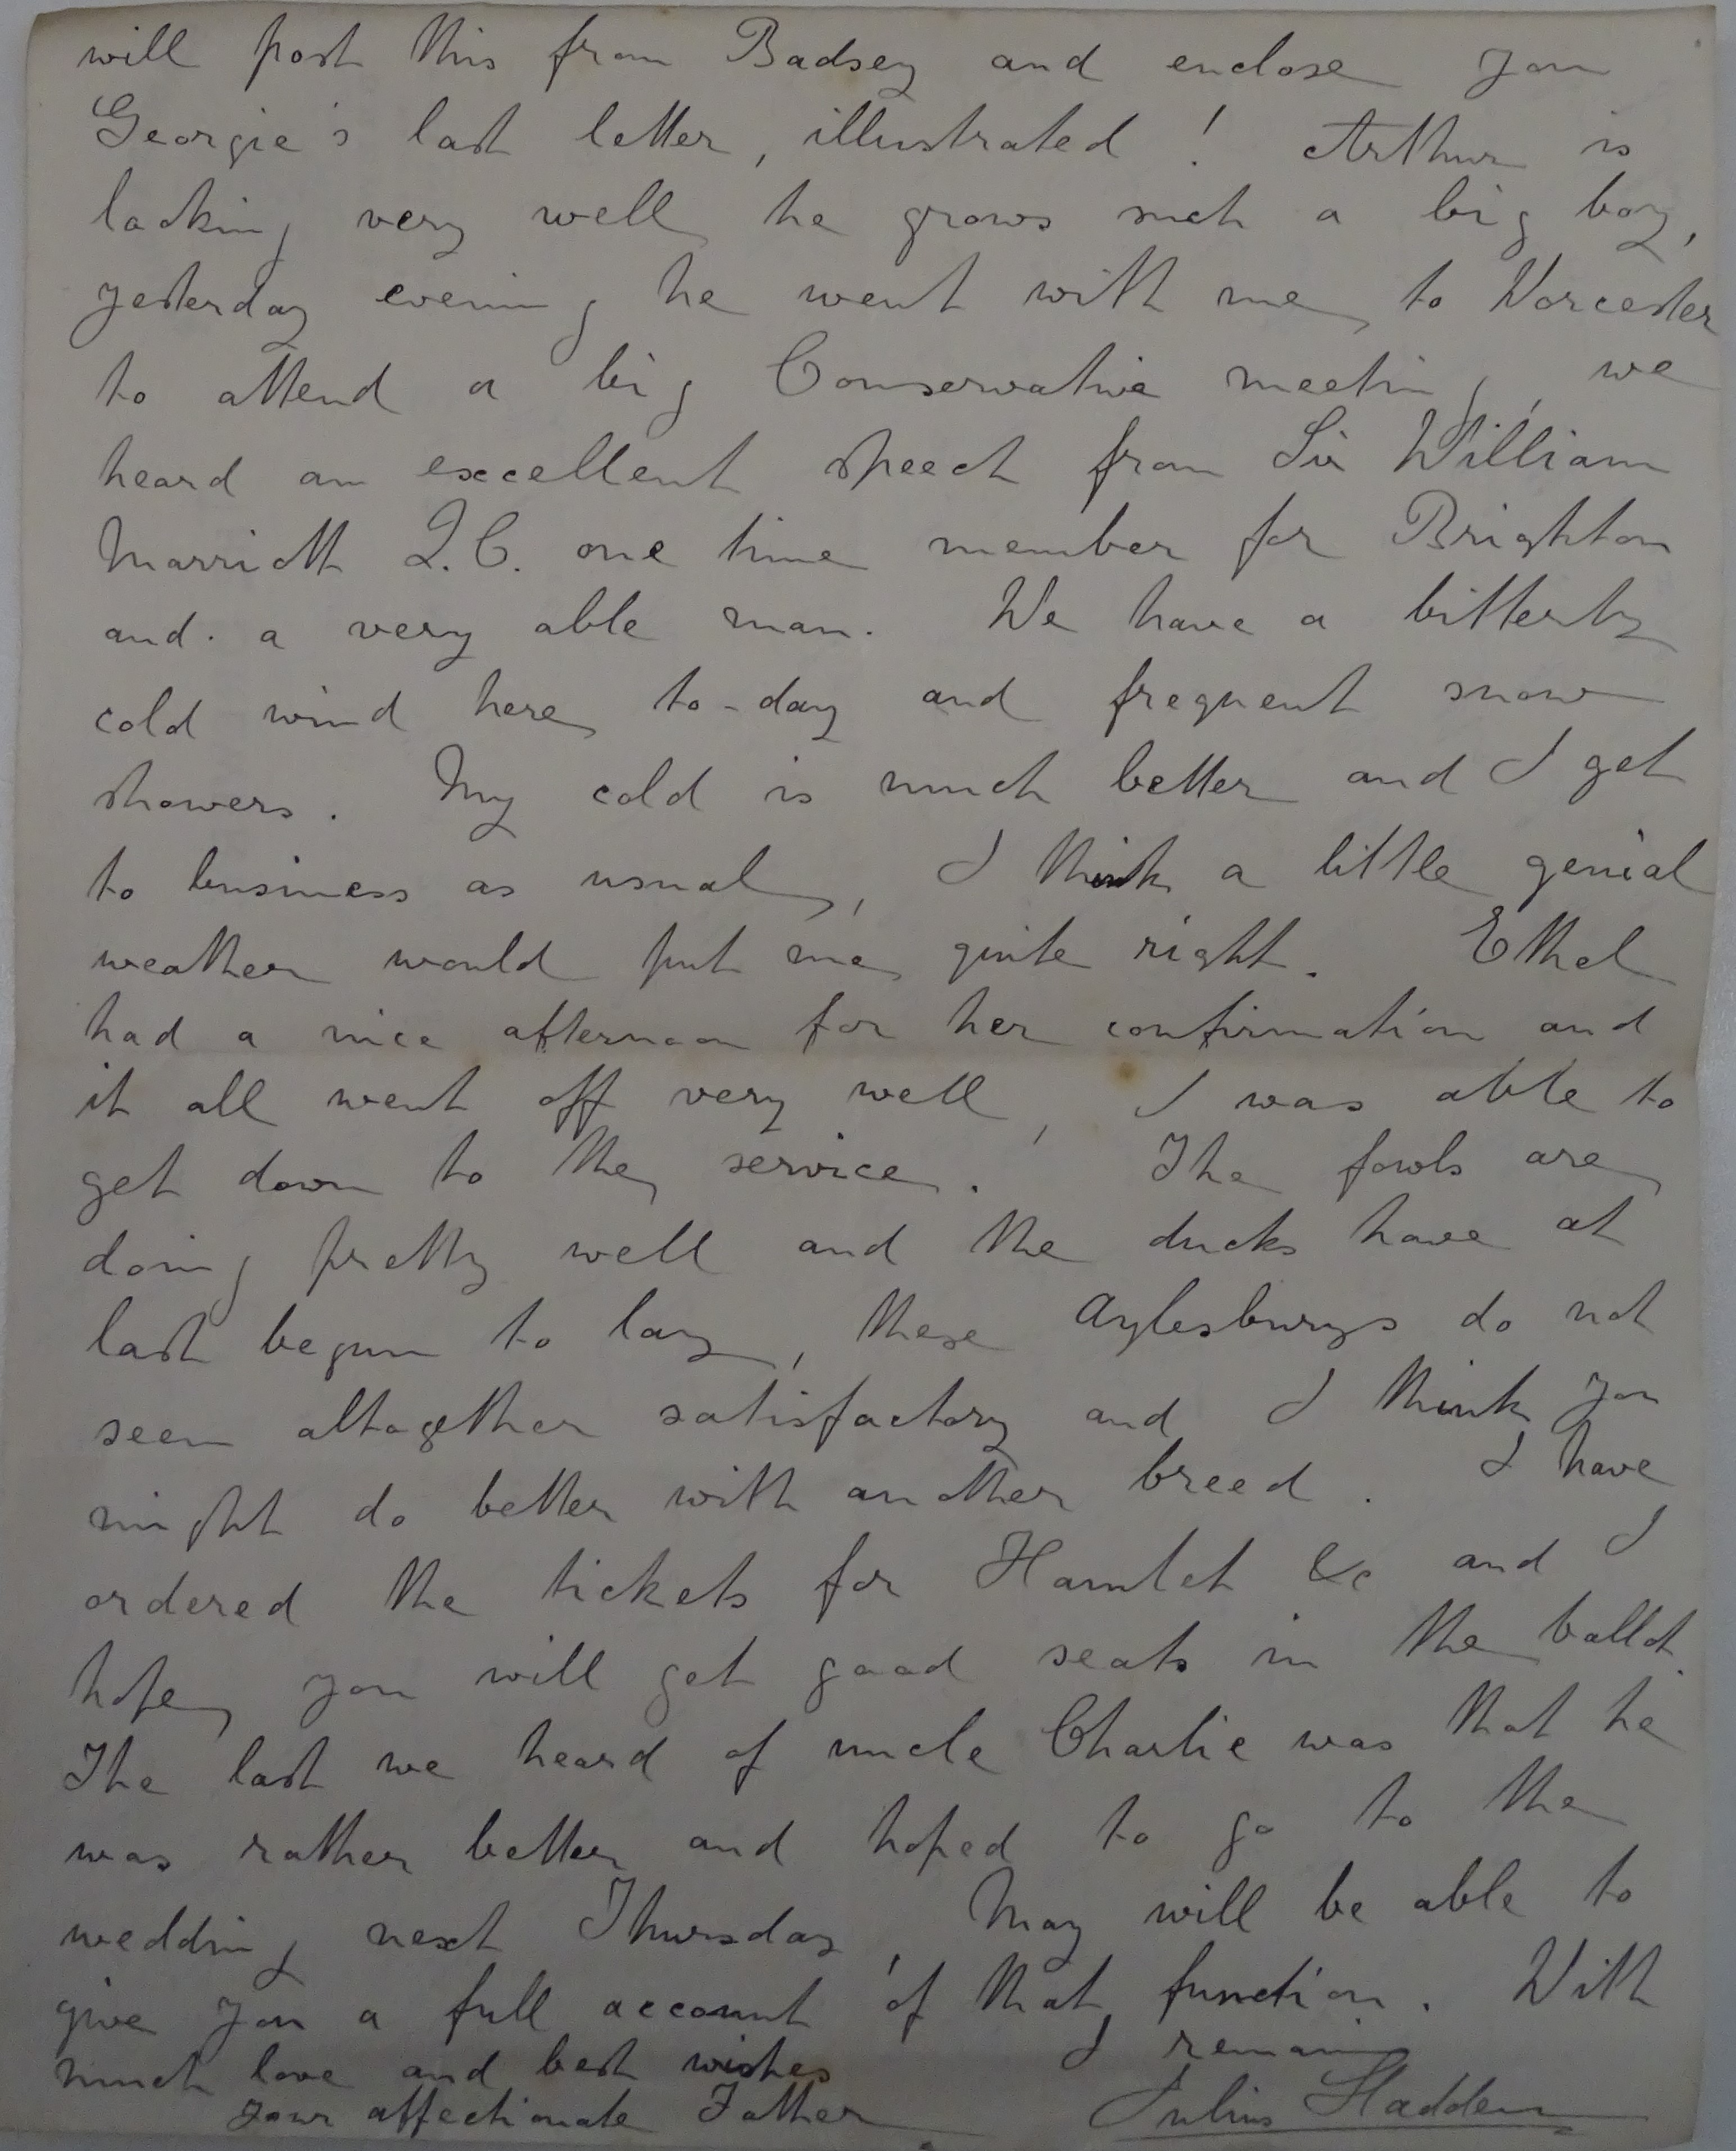 will post this from Badsey and enclose you
Georgie's last letter, illustrated! Arthur is
looking very well he grows such a big boy,
yesterday evening he went with me to Worcester
to attend a big Conservative meeting, we
heard an excellent speech from Sir William
Marriott Q.C. one time member for Brighton
and a very able man. We have a bitterly
cold wind here to-day and frequent snow
showers. My cold is much better and I get
to business as usual, I think a little genial
weather would put me quite right. Ethel
had a nice afternoon for her confirmation and
it all went off very well, I was able to
get down to the service. The fowls are
doing pretty well and the ducks have at
last begun to lay, these Aylesburys do not
seem altogether satisfactory and I think you
might do better with another breed. I have
ordered the tickets for Hamlet &c and I
hope you will get good seats in the ballot.
The last we heard of uncle Charlie was that he
was rather better and hoped to go to the
wedding next Thursday, May will be able to
give you a full account of that function. With
much love and best wishes I remain
your affectionate Father Julius Sladden